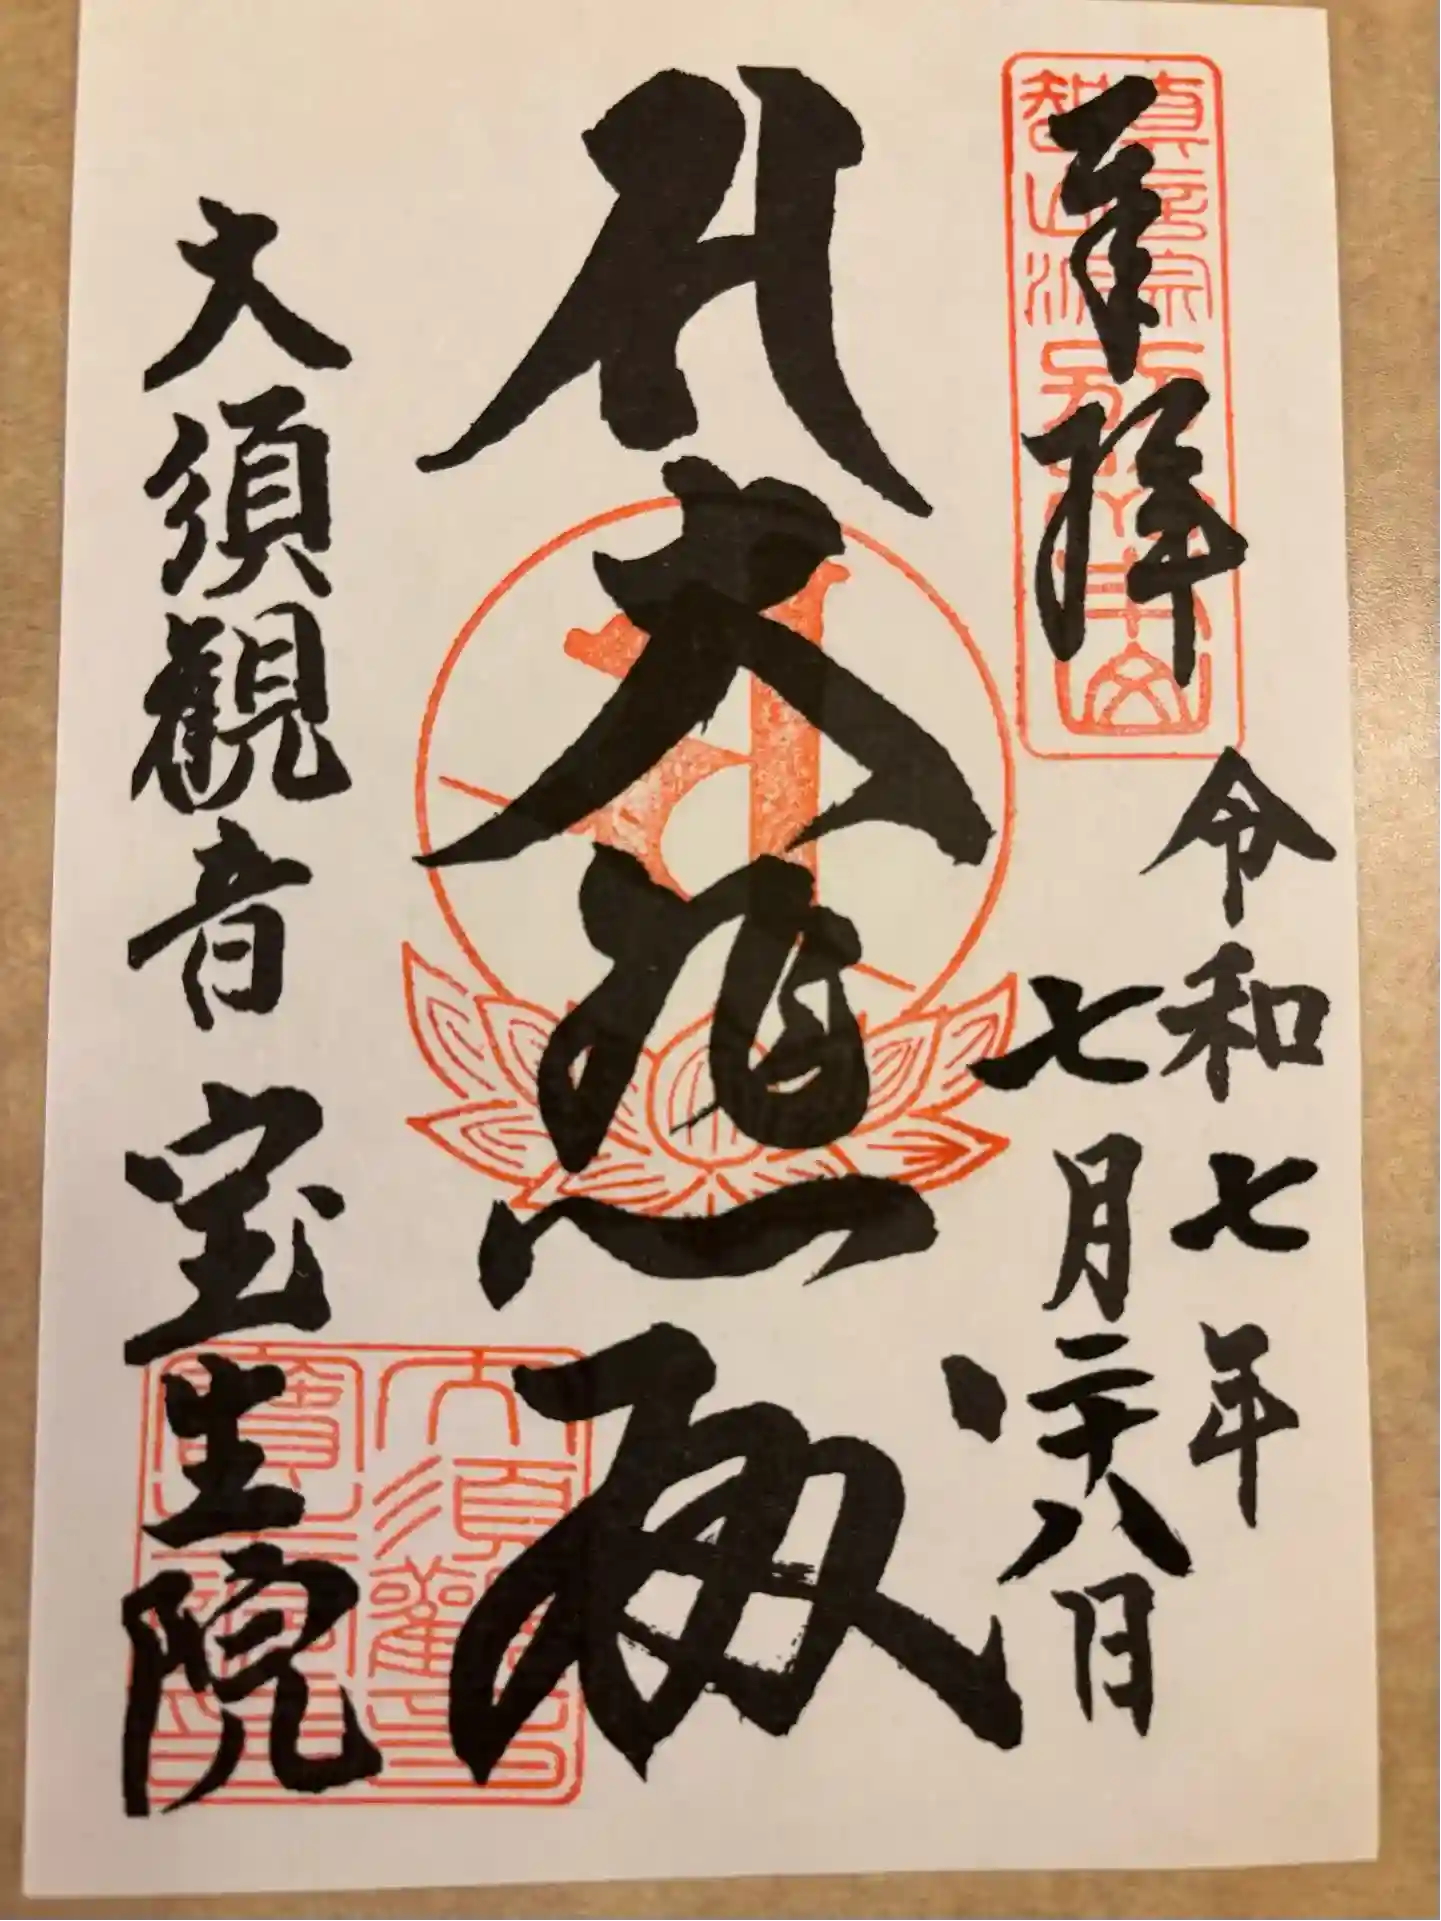 奉拝
真言宗
智山派別格本山
令和七年
七月二十八日
大悲殿
大須観音 宝生院
大須觀音
寶生院